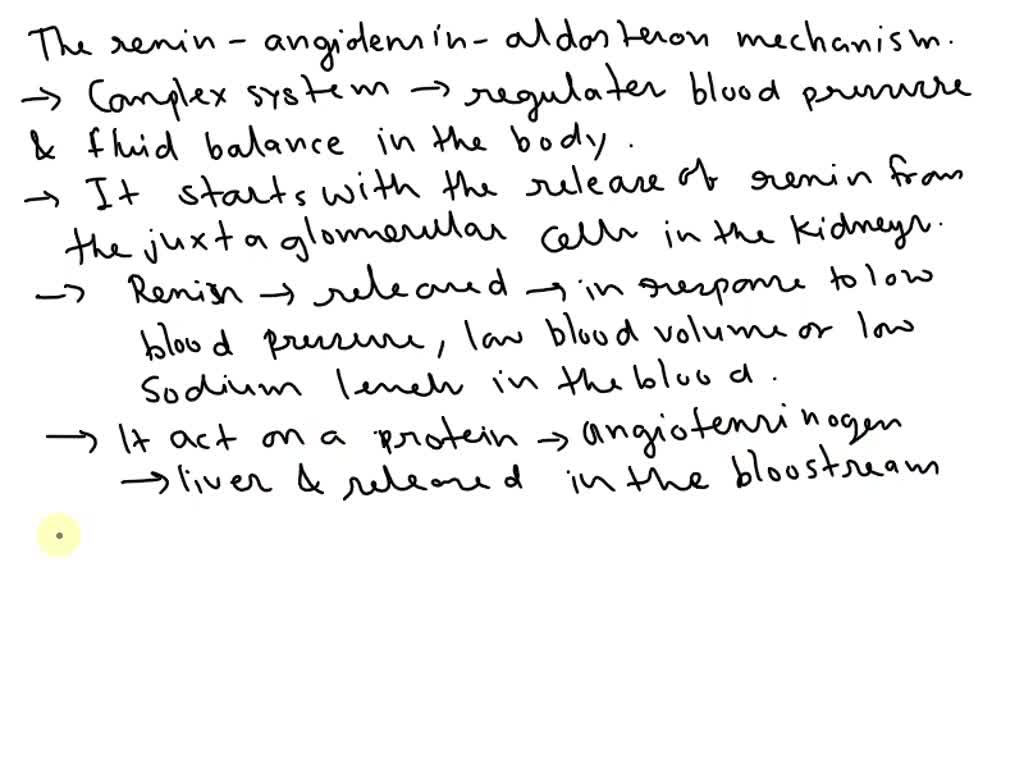 The renin - angiotensin - aldosteron mechanism.
→ Complex system → regulates blood pressure
& fluid balance in the body.
→ It starts with the release of renin from
the juxtaglomerular cells in the kidneys.
→ Renin → released → in response to low
blood pressure, low blood volume or low
sodium levels in the blood.
→ It act on a protein → angiotensinogen
→ liver & released in the bloostream